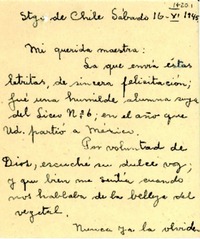 Stgo. de Chile Sábado 16-XI-1945
Mi querida maestra:
La que envía éstas
letritas, de sincera felicitación;
fué una humilde alumna suya
del Liceo Nº 6, en el año que
Ud. partió a México.
Por voluntad de
Dios, escuché su dulce voz;
y que bien me sentía cuando
nos hablaba de la belleza del
vegetal.
Nunca ya la olvidé